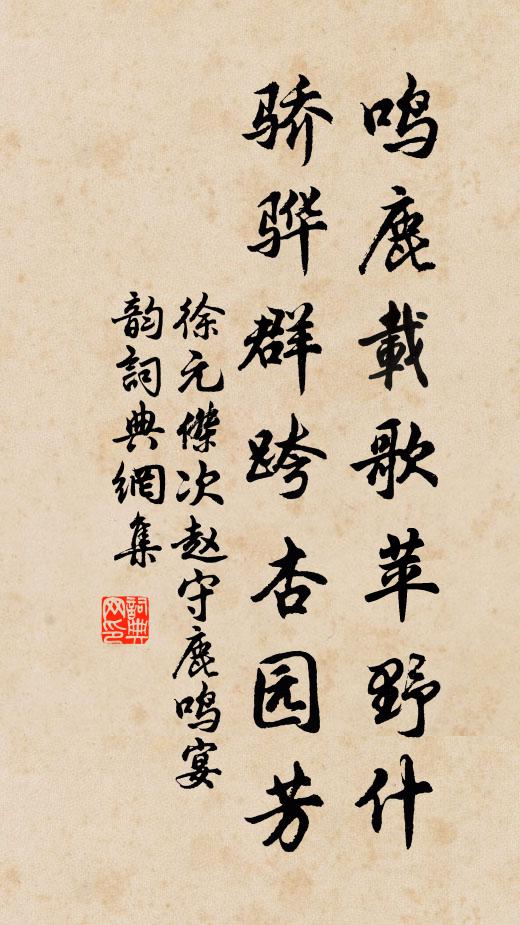 鸣鹿載歌苹野什
骄骅群跨杏园芳
徐元傑次赵守鹿鸣宴
韵詞典網集
詞典网印